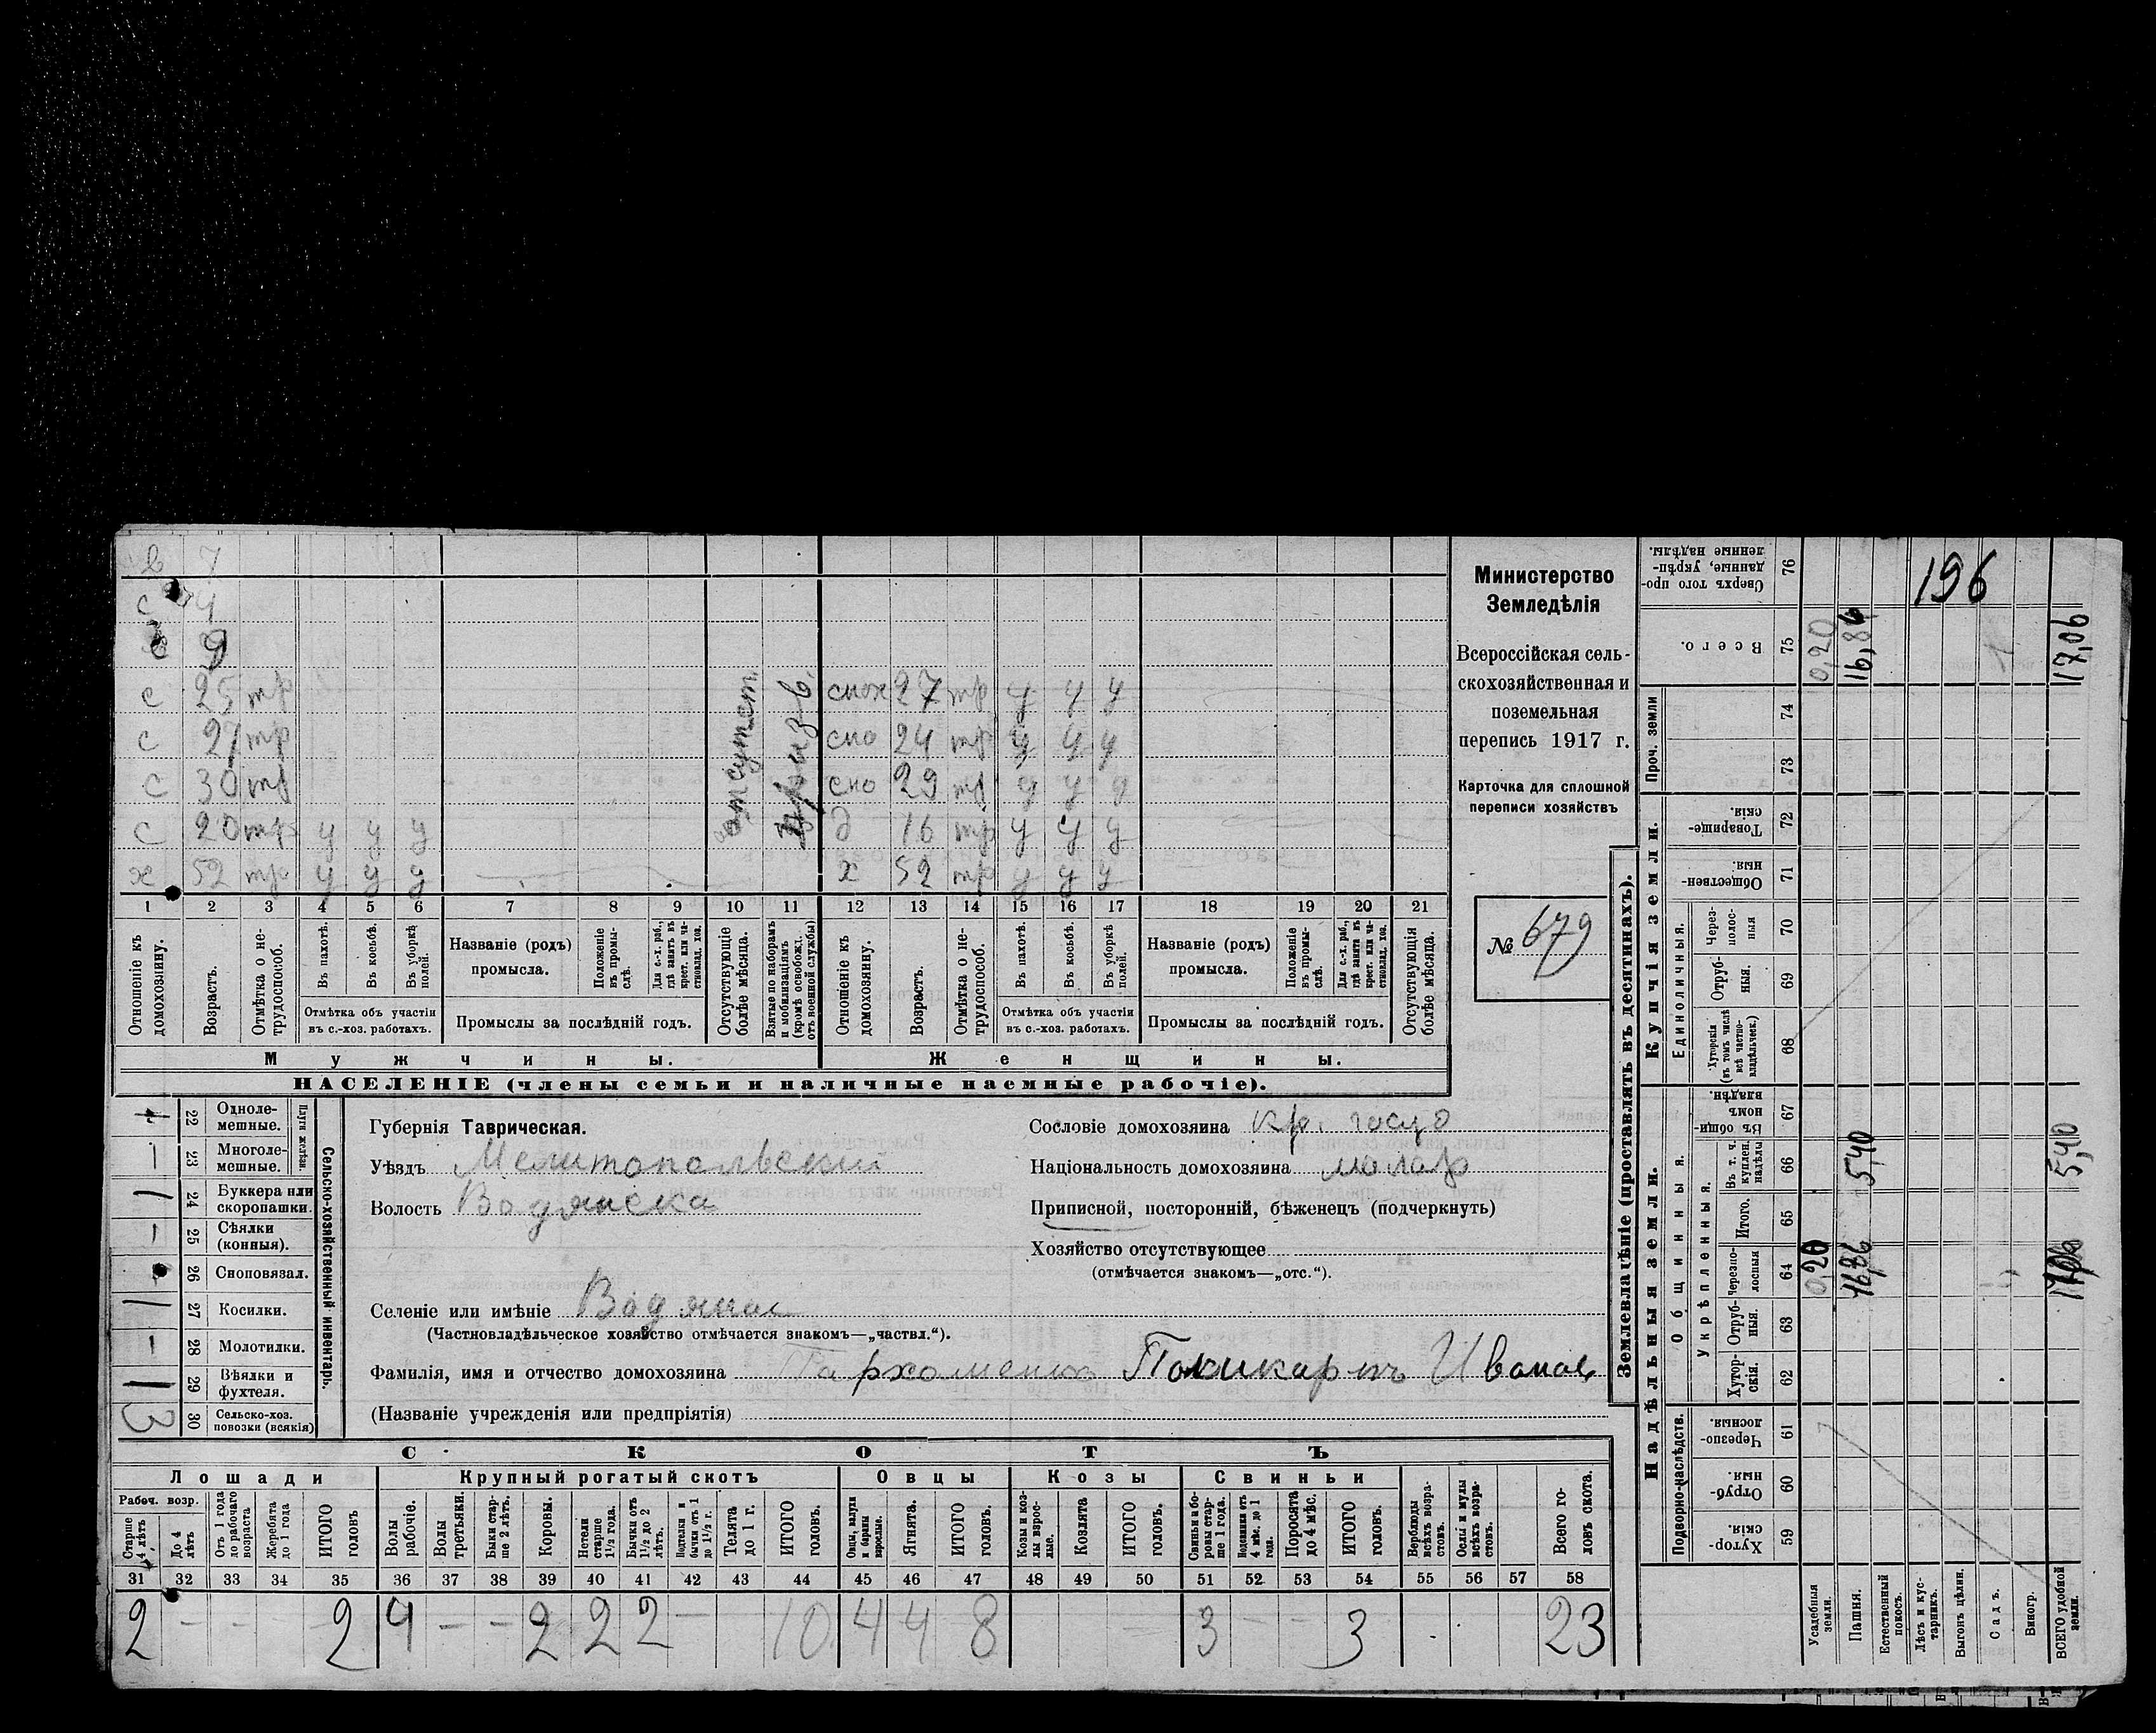 в 7
с 4
с 9
с 25 тр снох 27 тр у у у
с 27 тр сно 24 тр у у у
с 30 тр сно 29 тр у у у
с 20 тр у у у д 16 тр у у у
х 52 тр у у у х 52 тр у у у
отсутст.
1 2 3 4 5 6 7 8 9 10 11 12 13 14 15 16 17 18 19 20 21
Отношеніе къ домохозяину.
Возрастъ.
Отмѣтка о нетрудоспособ.
Въ пахотѣ.
Въ косьбѣ.
Въ уборкѣ полей.
Отмѣтка объ участіи въ с.-хоз. работахъ.
Названіе (родъ) промысла.
Положеніе въ промыслѣ.
Для с.-х. раб., гдѣ занятъ въ крест. или частновлад. хоз.
Промыслы за послѣдній годъ.
Отсутствующіе болѣе мѣсяца.
Взятые по наборамъ и мобилизаціямъ (кромѣ освобожд. отъ военной службы)
Отношеніе къ домохозяину.
Возрастъ.
Отмѣтка о нетрудоспособ.
Въ пахотѣ.
Въ косьбѣ.
Въ уборкѣ полей.
Отмѣтка объ участіи въ с.-хоз. работахъ.
Названіе (родъ) промысла.
Положеніе въ промыслѣ.
Для с.-х. раб., гдѣ занята въ крест. или частновлад. хоз.
Промыслы за послѣдній годъ.
Отсутствующія болѣе мѣсяца.
Мужчины.
Женщины.
НАСЕЛЕНІЕ (члены семьи и наличные наемные рабочіе).
Министерство
Земледѣлія
Всероссійская сель-
скохозяйственная и
поземельная
перепись 1917 г.
Карточка для сплошной
переписи хозяйствъ
№ 679
22 Одноле-
мешные.
Плуги желѣзн.
— 23 Многоле-
мешные.
1 24 Буккера или
скоропашки.
— 25 Сѣялки
(конныя).
26 Сноповязал.
1 27 Косилки.
— 28 Молотилки.
1 29 Вѣялки и
фухтеля.
3 30 Сельско-хоз.
повозки (всякія)
Сельско-хозяйственный инвентарь.
Губернія Таврическая.
Уѣздъ Мелитопольский
Волость Водянска
Сословіе домохозяина кр. госуд
Національность домохозяина малор
Приписной, посторонній, бѣженецъ (подчеркнуть)
Хозяйство отсутствующее
(отмѣчается знакомъ—„отс.“).
Селеніе или имѣніе Водяное
(Частновладѣльческое хозяйство отмѣчается знакомъ—„частвл.“).
Фамилія, имя и отчество домохозяина Пархоменко Поликарпъ Иванов
(Названіе учрежденія или предпріятія)
СКОТЪ
Лошади
Крупный рогатый скотъ
Овцы
Козы
Свиньи
Рабоч. возр.
Старше 4 лѣтъ
До 4 лѣтъ
Отъ 1 года до рабочаго возраста
Жеребята до 1 года
ИТОГО головъ
Волы рабочіе.
Волы третьяки.
Быки старше 2 лѣтъ.
Коровы.
Нетели старше 1½ года.
Бычки отъ 1½ до 2 лѣтъ.
Подтелки и бычки отъ 1 до 1½ г.
Телята до 1 г.
ИТОГО головъ.
Овцы, валухи и бараны взрослые.
Ягнята.
ИТОГО головъ.
Козы и козлы взрослые.
Козлята
ИТОГО головъ.
Свиньи и боровы старше 1 года.
Подсвинки отъ 4 мѣс. до 1 года.
Поросята до 4 мѣс.
ИТОГО головъ.
Верблюды всѣхъ возрастовъ.
Ослы и мулы всѣхъ возрастовъ.
Всего головъ скота.
31 32 33 34 35 36 37 38 39 40 41 42 43 44 45 46 47 48 49 50 51 52 53 54 55 56 57 58
2 — — — 2 4 — — 2 2 2 — 10 4 4 8 3 — — 3 23
Землевладѣніе (проставлять въ десятинахъ).
Надѣльныя земли.
Купчія земли.
Проч. земли
Подворно-наслѣдств.
Общинныя.
Укрѣпленныя.
Единоличныя.
Сверхъ того проданные, укрѣпленные надѣлы. 76
Всего. 75
74
73
Товарищескія 72
Общественныя 71
Черезполосныя 70
Отрубныя. 69
Хуторскія (въ томъ числѣ всѣ частновладѣльческ.) 68
Въ общинномъ владѣн. 67
Въ т. ч. куплен. надѣлы 66
Итого. 65
Черезполосныя 64
Отрубныя. 63
Хуторскія. 62
Черезполосныя. 61
Отрубныя. 60
Хуторскія. 59
196
0,20 16,86 17,06
5,40 5,40
0,20 16,86 17,06
Усадебныя земли.
Пашня.
Естественный покосъ.
Лѣсъ и кустарникъ.
Выгонъ цѣлин.
Садъ.
Виногр.
ВСЕГО удобной земли.